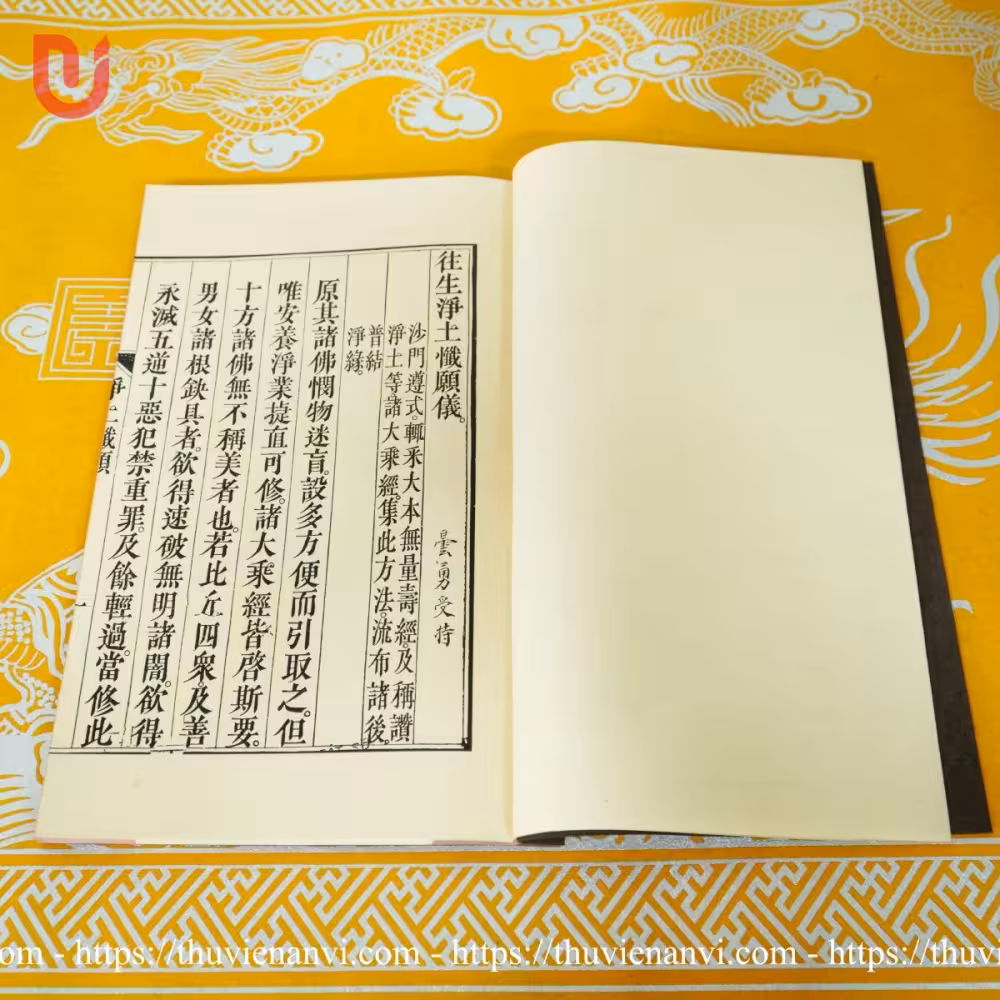 往生淨土懺願儀。
曇勇受持
沙門遵式。輒釆大本無量壽經。及稱讚
淨土等。諸大乘經。集此方法。流布諸後。
普結
淨緣。
原其諸佛憫物迷盲。設多方便而引取之。但
唯安養淨業捷直可修。諸大乘經皆啓斯要。
十方諸佛無不稱美者也。若比丘四衆。及善
男女諸根鈌具者。欲得速破無明諸闇。欲得
永滅五逆十惡犯禁重罪。及餘輕過。當修此
淨土懺願
一
.com - https://thuvienanvi.com - https://thuvienanvi.com - https:/